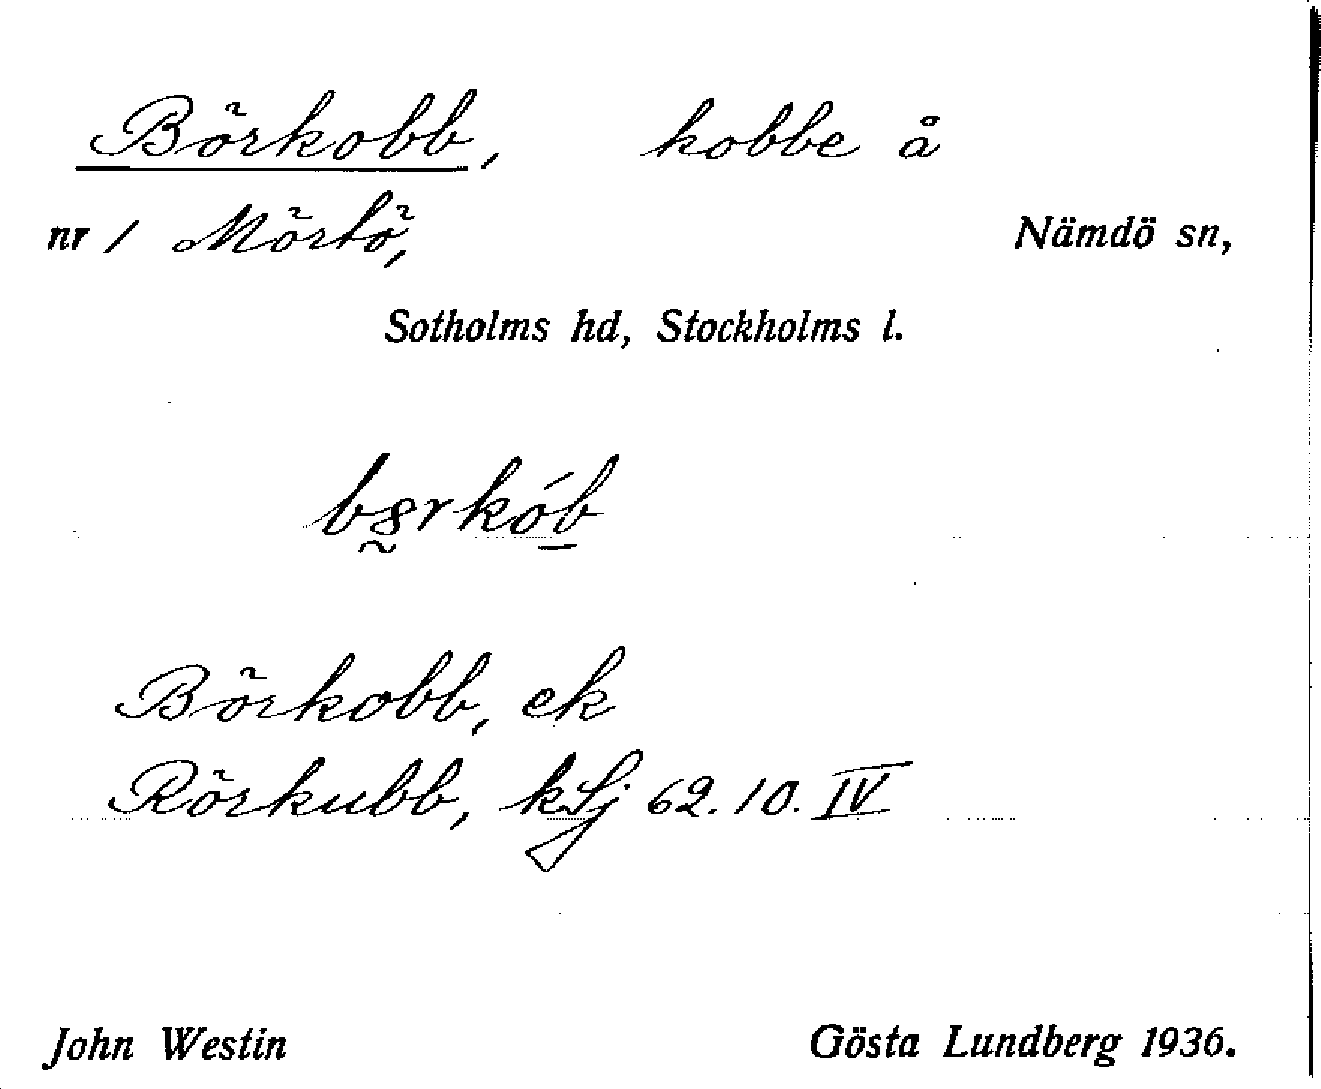 Börkobb, kobbe å
nr 1 Mörtö, Nämdö sn,
Sotholms hd, Stockholms l.
Börkobb, ek
Rörkubb, kSj 62.10. IV
John Westin Gösta Lundberg 1936.